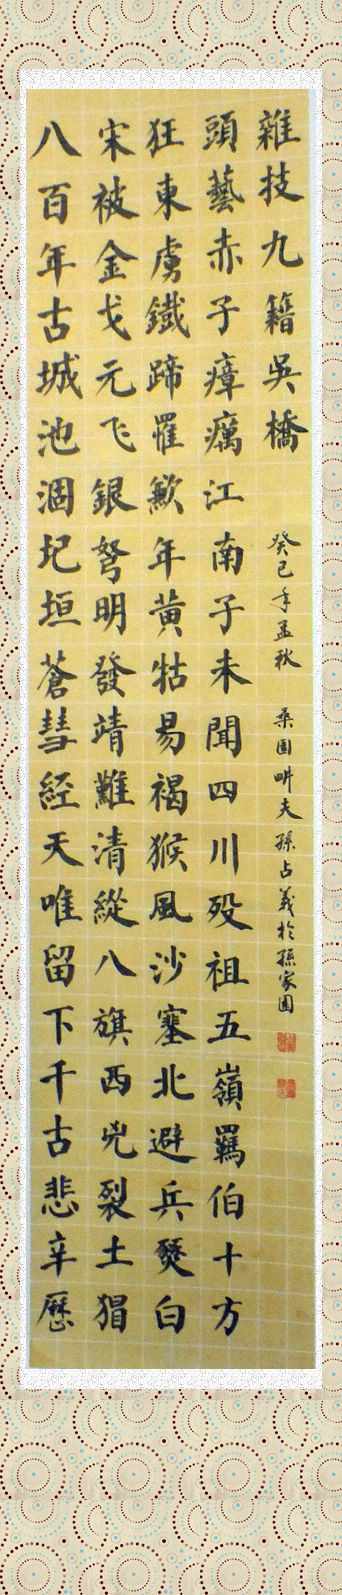 八百年古城池涸圮垣蒼彗經天唯留下千古悲辛歷
宋被金戈元飞銀弩明發靖難清縱八旗西兇裂土猖
狂東虜鐵蹄罹歉年黃牯易褐猴風沙塞北避兵燹白
頭藝赤子瘴癘江南子未聞四川歿祖五嶺羈伯十方
雜技九籍吳橋
癸巳年孟秋 桑園畊夫孫占義於孫家園